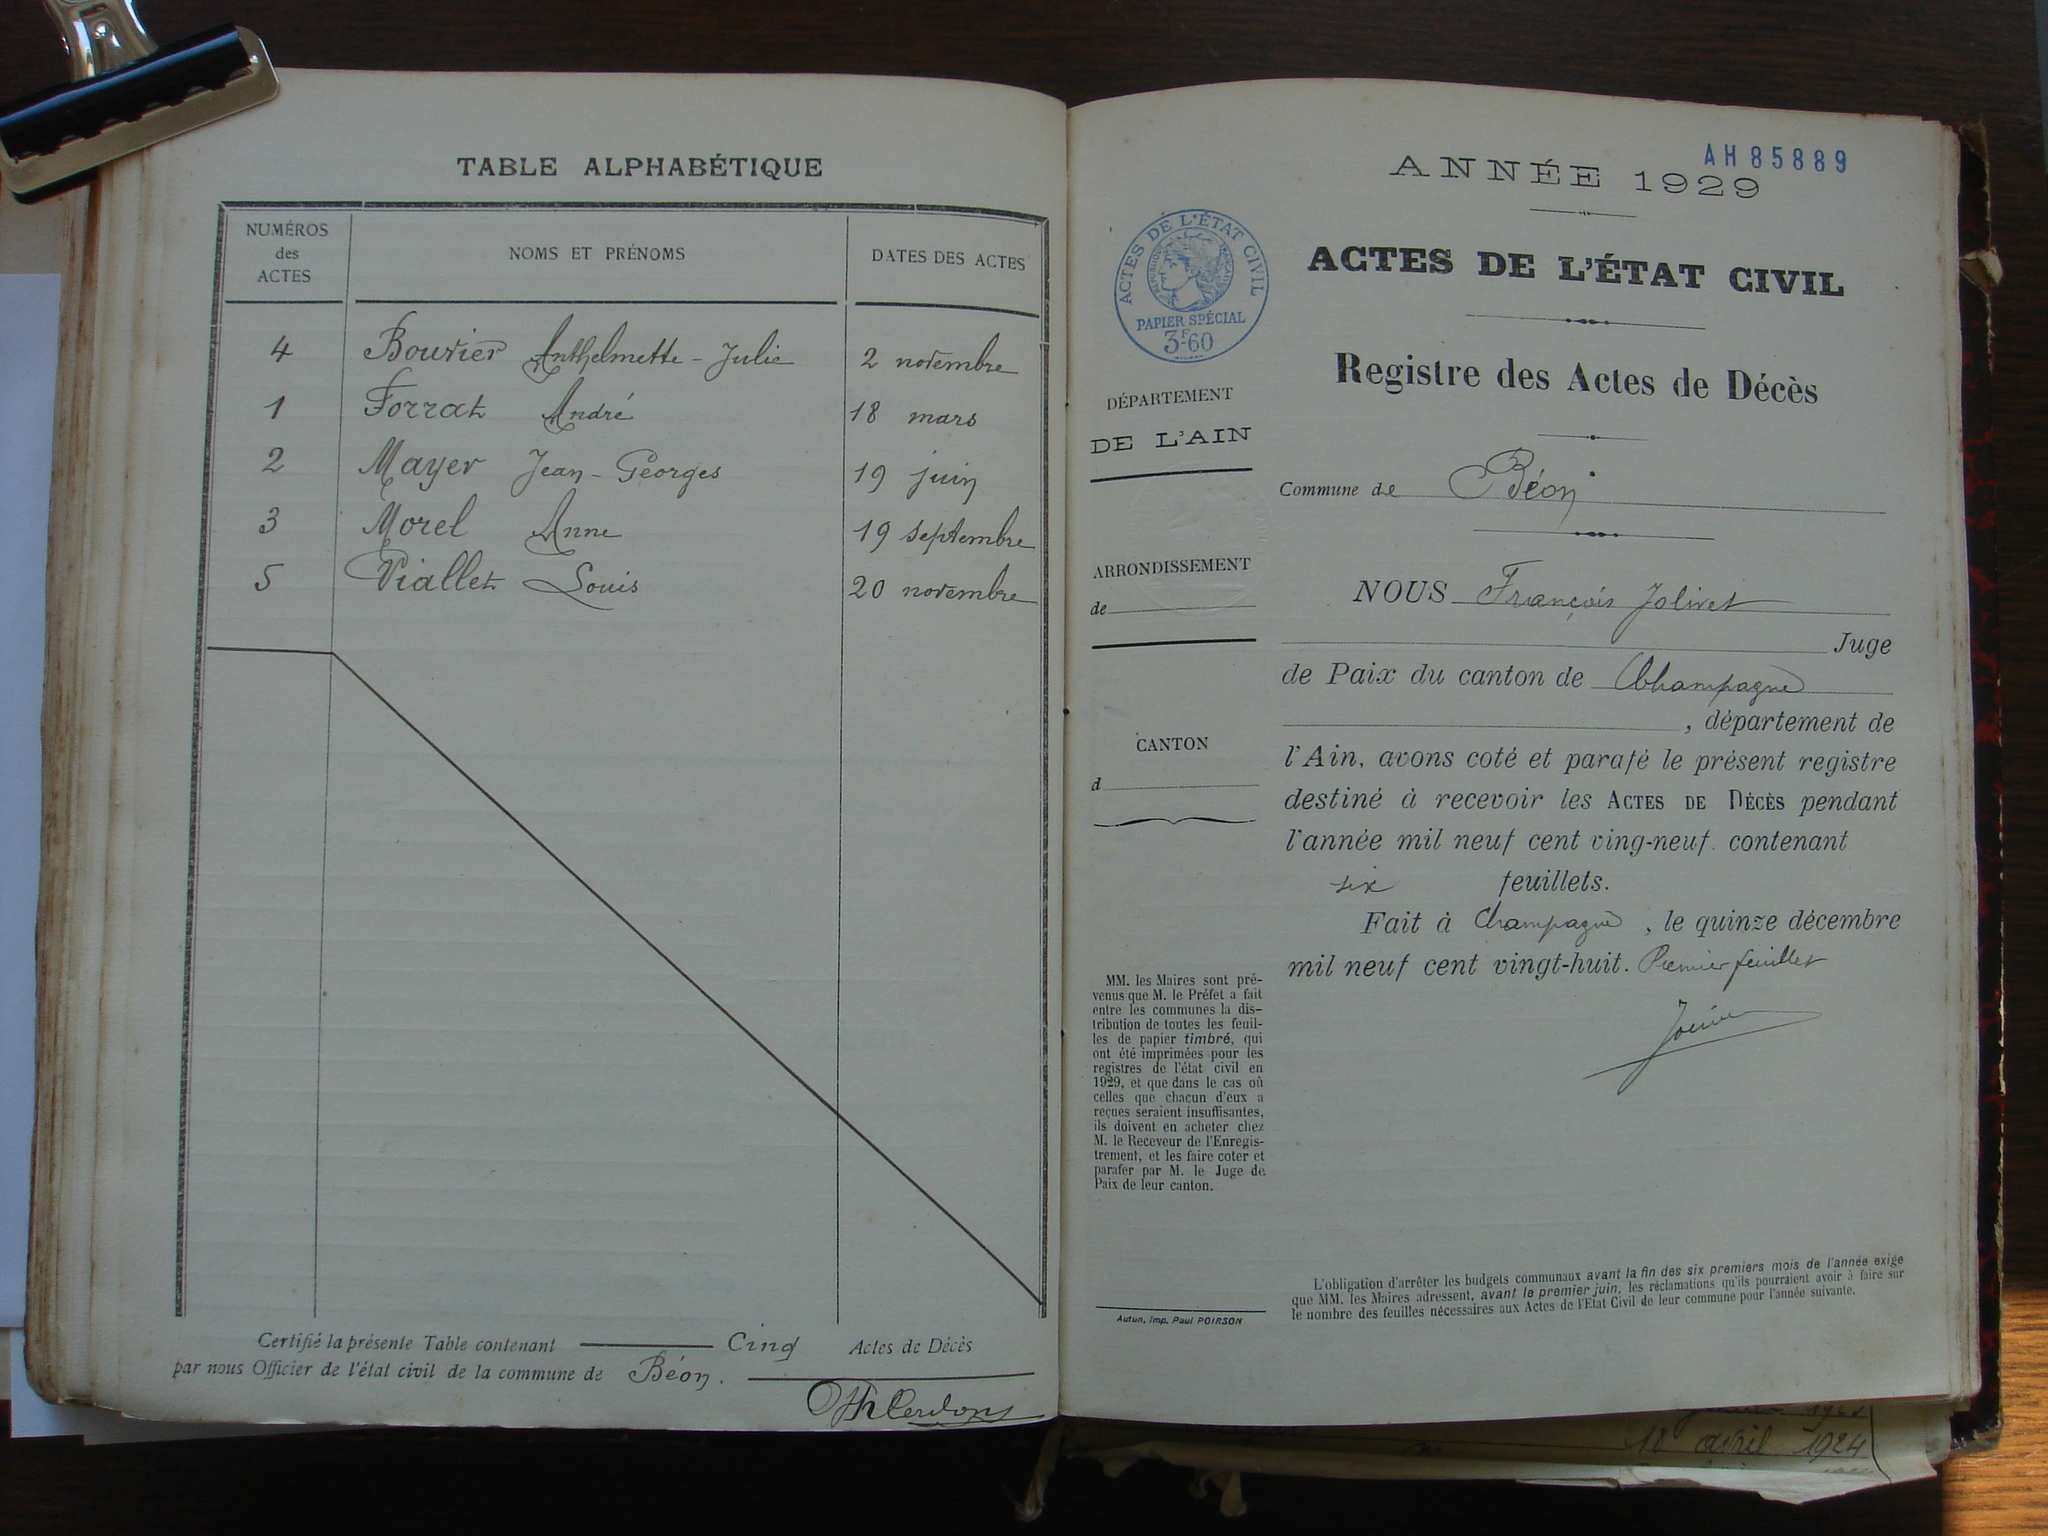 TABLE ALPHABÉTIQUE
NUMÉROS des ACTES NOMS ET PRÉNOMS DATES DES ACTES
4 Bouvier Anthelmette-Julie 2 novembre
1 Forrat André 18 mars
2 Mayer Jean-Georges 19 juin
3 Morel Anne 19 septembre
5 Viallet Louis 20 novembre
Certifié la présente Table contenant Cinq Actes de Décès
par nous Officier de l'état civil de la commune de Béon.
AH 85889
ANNÉE 1929
ACTES DE L'ÉTAT CIVIL
Registre des Actes de Décès
ACTES DE L'ÉTAT CIVIL
RÉPUBLIQUE FRANÇAISE
PAPIER SPÉCIAL
3F60
DÉPARTEMENT
DE L'AIN
ARRONDISSEMENT
de
CANTON
d
Commune de Béon
NOUS François Jolivet
Juge
de Paix du canton de Champagne
, département de
l'Ain, avons coté et parafé le présent registre
destiné à recevoir les ACTES DE DÉCÈS pendant
l'année mil neuf cent ving-neuf. contenant
six feuillets.
Fait à Champagne, le quinze décembre
mil neuf cent vingt-huit. Premier feuillet
MM. les Maires sont pré-
venus que M. le Préfet a fait
entre les communes la dis-
tribution de toutes les feuil-
les de papier timbré, qui
ont été imprimées pour les
registres de l'état civil en
1929, et que dans le cas où
celles que chacun d'eux a
reçues seraient insuffisantes,
ils doivent en acheter chez
M. le Receveur de l'Enregis-
trement, et les faire coter et
parafer par M. le Juge de
Paix de leur canton.
L'obligation d'arrêter les budgets communaux avant la fin des six premiers mois de l'année exige
que MM. les Maires adressent, avant le premier juin, les réclamations qu'ils pourraient avoir à faire sur
le nombre des feuilles nécessaires aux Actes de l'Etat Civil de leur commune pour l'année suivante.
Autun, Imp. Paul POIRSON
18 avril 1924